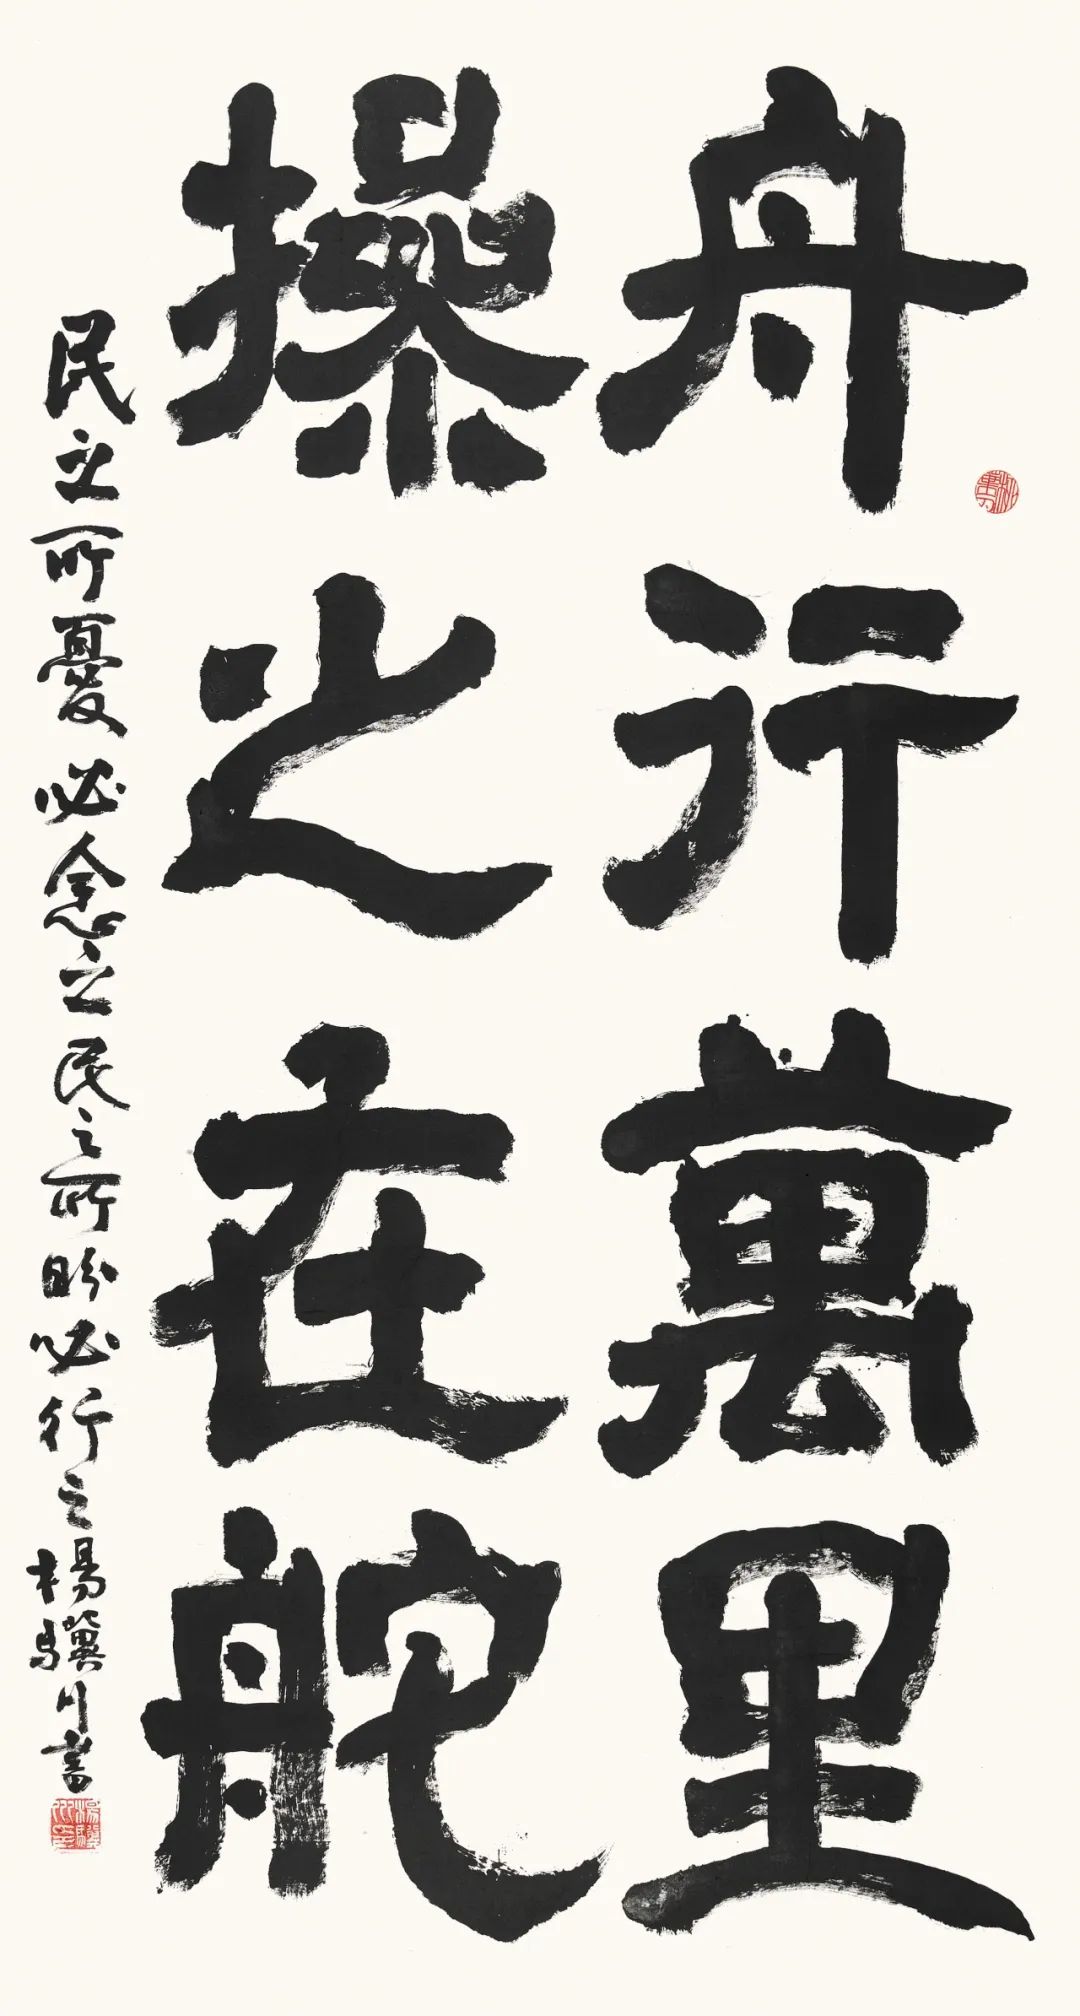 舟行萬里
操之在舵
民之所憂必念之民之所盼必行之楊驥川書